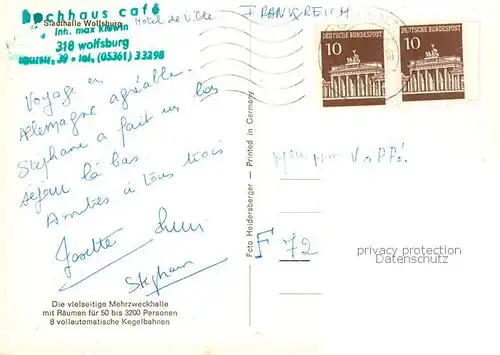 Hochhaus café
Stadthalle Wolfsburg
Hotel de Ville
inh. max
318 wolfsburg
30 - tel. (05361) 33298
FRANKREICH
DEUTSCHE BUNDESPOST
10
DEUTSCHE BUNDESPOST
10
Voyage en
Allemagne agréable.
Stephane a fait un bon
séjour là bas.
Amitiés à tous trois
Josette
Stephane
F 72
Foto Heidersberger — Printed in Germany
privacy protection
Datenschutz
Die vielseitige Mehrzweckhalle
mit Räumen für 50 bis 3200 Personen
8 vollautomatische Kegelbahnen